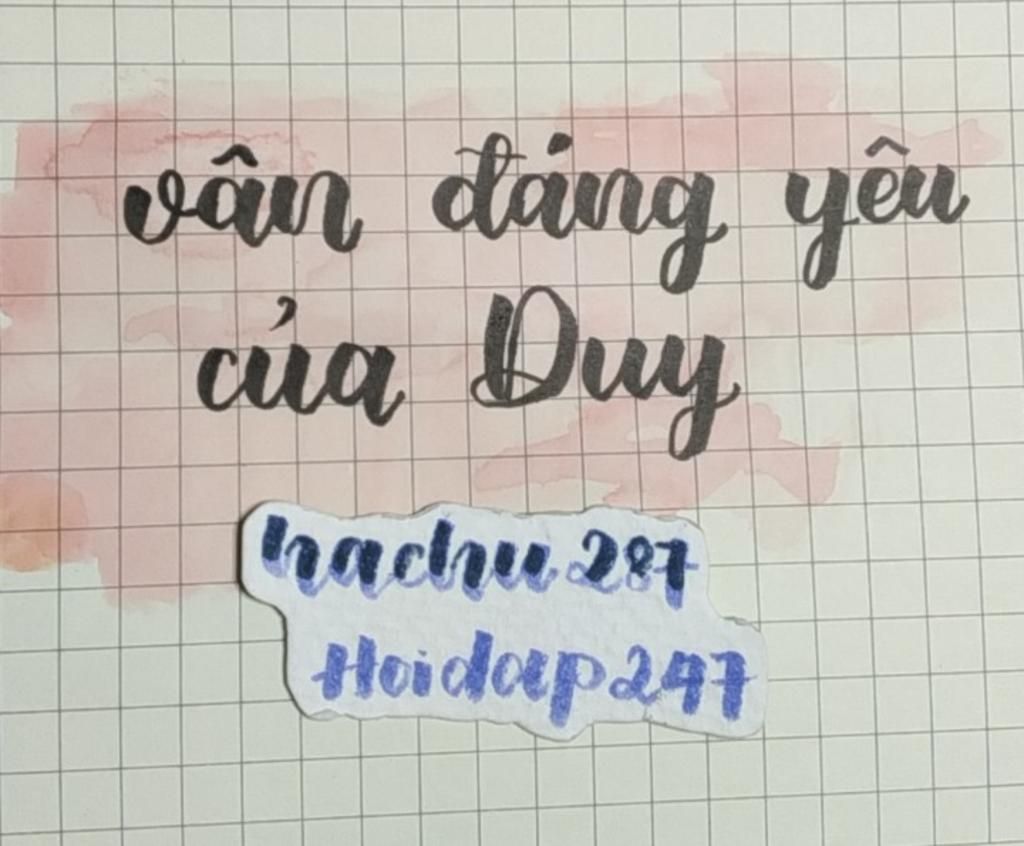 vân đáng yêu
của Duy
hachu287
Hoidap247